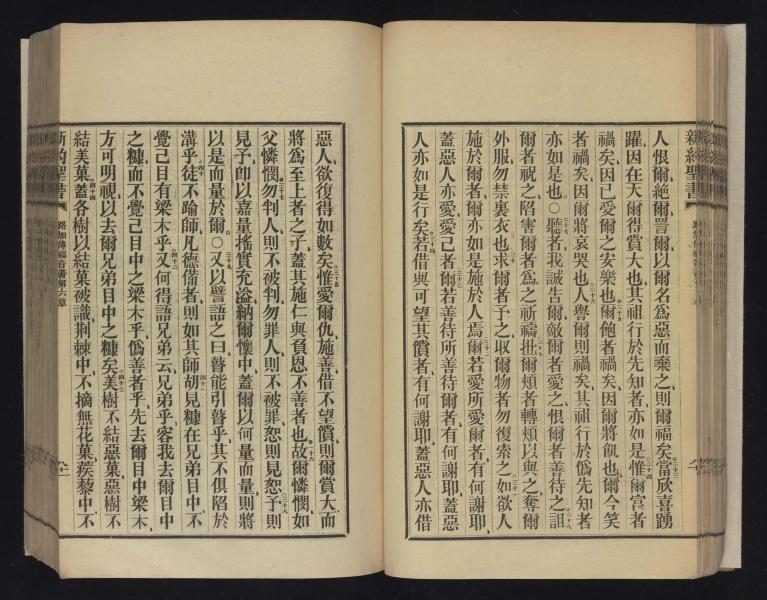 新約聖書
人恨爾絕爾詈爾以爾名爲惡而棄之則爾福矣當欣喜踴
躍因在天爾得賞大也其祖行於先知者亦如是惟爾富者
禍矣因已受爾之安樂也爾飽者禍矣因爾將飢也爾今笑
者禍矣因爾將哀哭也人譽爾則禍矣其祖行於僞先知者
亦如是也○聽者我誠告爾敵爾者愛之恨爾者善待之詛
爾者祝之陷害爾者爲之祈禱批爾頰者轉頰以與之奪爾
外服勿禁裏衣也求爾者予之取爾物者勿復索之如欲人
施於爾者爾亦如是施於人焉爾若愛所愛爾者有何謝耶
蓋惡人亦愛愛己者爾若善待所善待爾者有何謝耶蓋惡
人亦如是行矣若借與可望其償者有何謝耶蓋惡人亦借
惡人欲復得如數矣惟愛爾仇施善借不望償則爾賞大而
將爲至上者之子蓋其施仁與負恩不善者也故爾憐憫如
父憐憫勿判人則不被判勿罪人則不被罪恕則見恕予則
見予卽以嘉量搖實充溢納爾懷中蓋爾以何量而量則將
以是而量於爾○又以譬語之曰瞽能引瞽乎其不俱陷於
溝乎徒不踰師凡德備者則如其師胡見糠在兄弟目中不
覺己目有梁木乎又何得語兄弟云兄弟乎容我去爾目中
之糠而不覺己目中之梁木乎僞善者乎先去爾目中梁木
方可明視以去爾兄弟目中之糠矣美樹不結惡菓惡樹不
結美菓蓋各樹以結菓被識荆棘中不摘無花菓蒺藜中不
新約聖書
路加傳福音書第六章